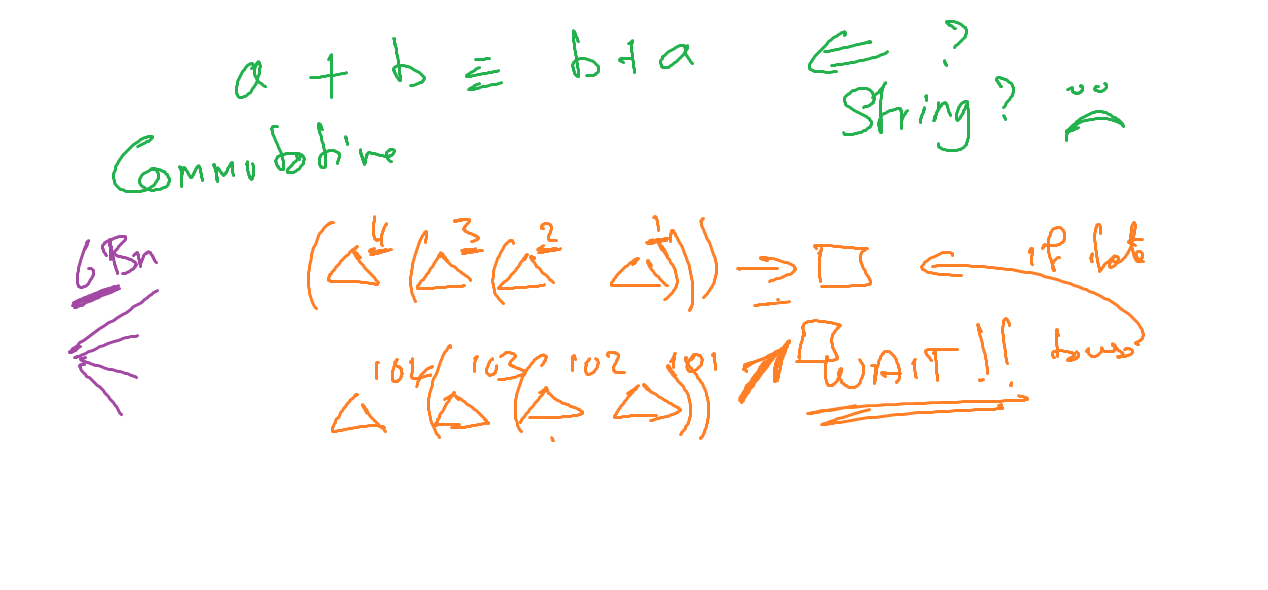 a + b ≡ b+a ⇐ ?
String?
Commutative
6Bn
(△4 (△3 (△2 △1))) ⇒ □ ← if
△104 (△103 (△102 △101)) ↗ □ WAIT!!